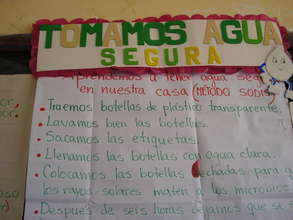 TOMAMOS AGUA
SEGURA
Aprendemos a tener agua
en nuestra casa (METODO SODIS
• Traemos botellas de plástico transparente.
• Lavamos bien las botellas.
• Sacamos las etiquetas.
• Llenamos las botellas con agua clara.
• Colocamos las botellas echadas para
los rayos solares maten a los microbios
• Después de seis horas